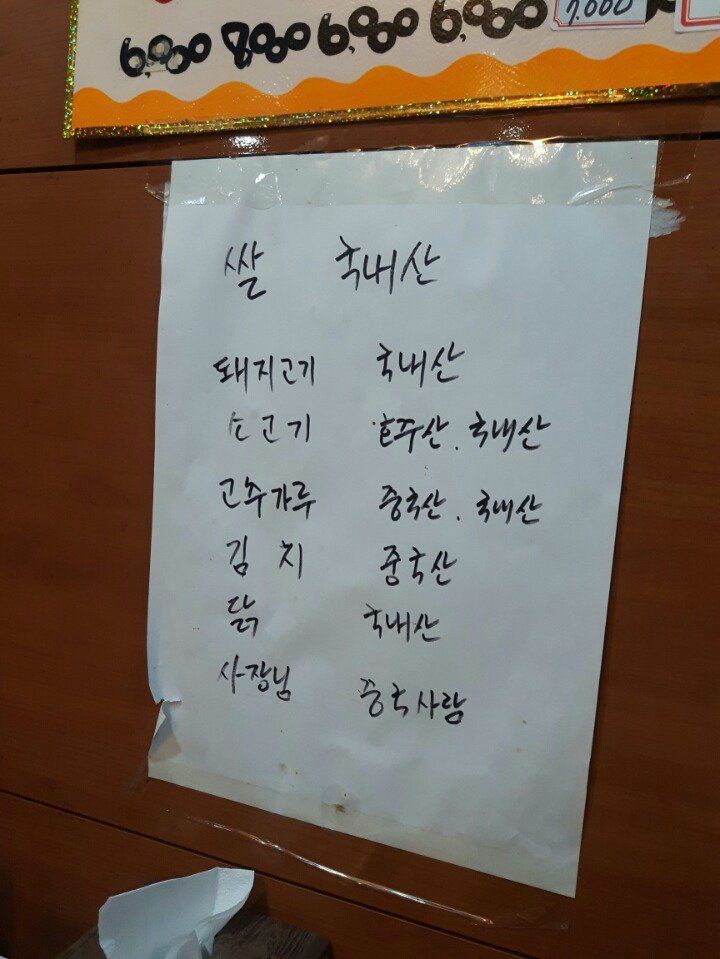 6,900 8900 6,900 6,900 7.000
쌀 국내산
돼지고기 국내산
소고기 호주산. 국내산
고추가루 중국산. 국내산
김치 중국산
닭 국내산
사장님 중국사람